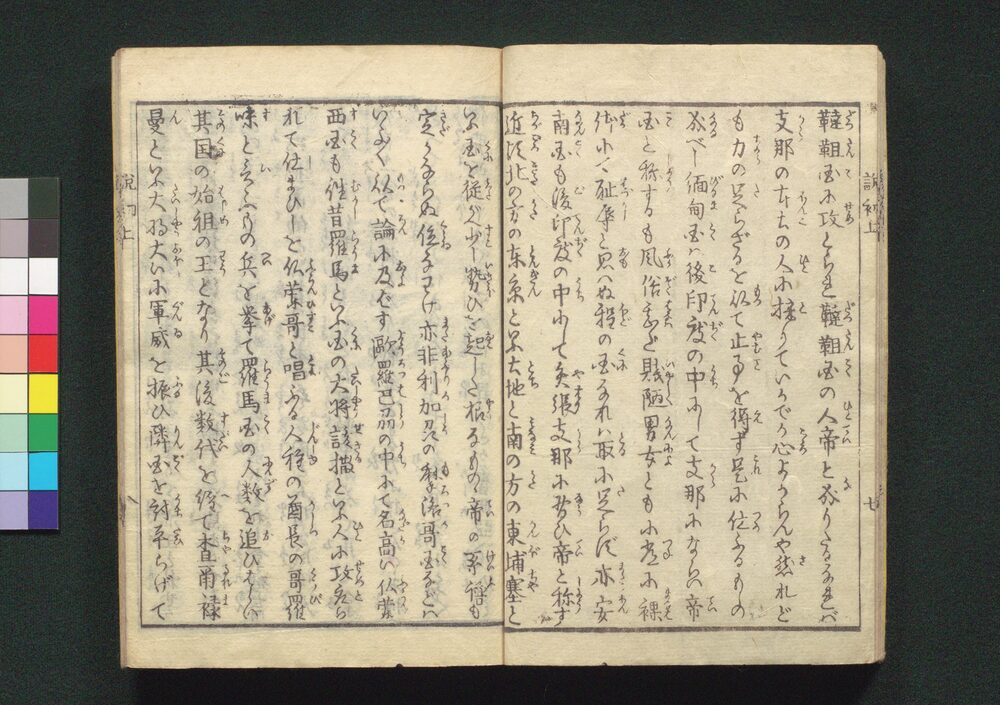 韃靼国に攻とられ韃靼国の人帝と成りたるなれば
支那の本土の人に撰りていかでか心よからんや然れど
も力の足らざるを以て止事を得ず是に仕ふるもの
なるべし緬甸国は後印度の中にして支那にならひ帝
国と称するも風俗甚だ賤陋男女とも小
に恥辱と思はぬ程の国なれば取に足らず亦安
南国も後印度の中にして矢張支那に习ひ帝と称す
近頃北の方の東京といふ大地と南の方の東埔塞と
いふ国を従がへ少し勢ひを起したれ 帝の系統も
定かならぬ位なりけ亦非利加州の摩洛哥国などは
いふべく以て論に及ばす歐羅巴州の中にて名高い仏蘭
西国も往昔羅馬といふ国の大将該撒といふ人に攻めら
れて仕まひしを仏蘭哥と唱ふる人種の酋長の哥羅
味といふもの兵を挙て羅馬国の人数を追ひはらい
其国の始祖の王となり其後数代を経て査爾禄
曼といふ大将大いに軍威を振ひ隣国を討平らげて
説初上
七
説初上
八